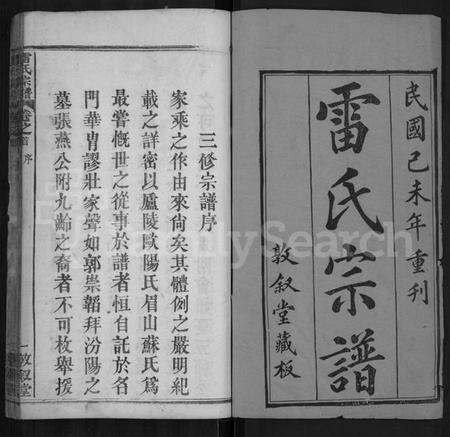 民國己未年 重刊
雷氏宗譜
敦叙堂藏板
三修宗譜序
家乘之作由來尚矣其體例之嚴明紀
載之詳密以廬陵歐陽氏眉山蘇氏爲
最嘗慨世之從事於譜者恒自託於名
門華胄謬壯家聲如郭崇韜拜汾陽之
墓張燕公附九齡之裔者不可枚舉援
雷氏宗譜 卷之首 序
一 敦叙堂
FamilySearch